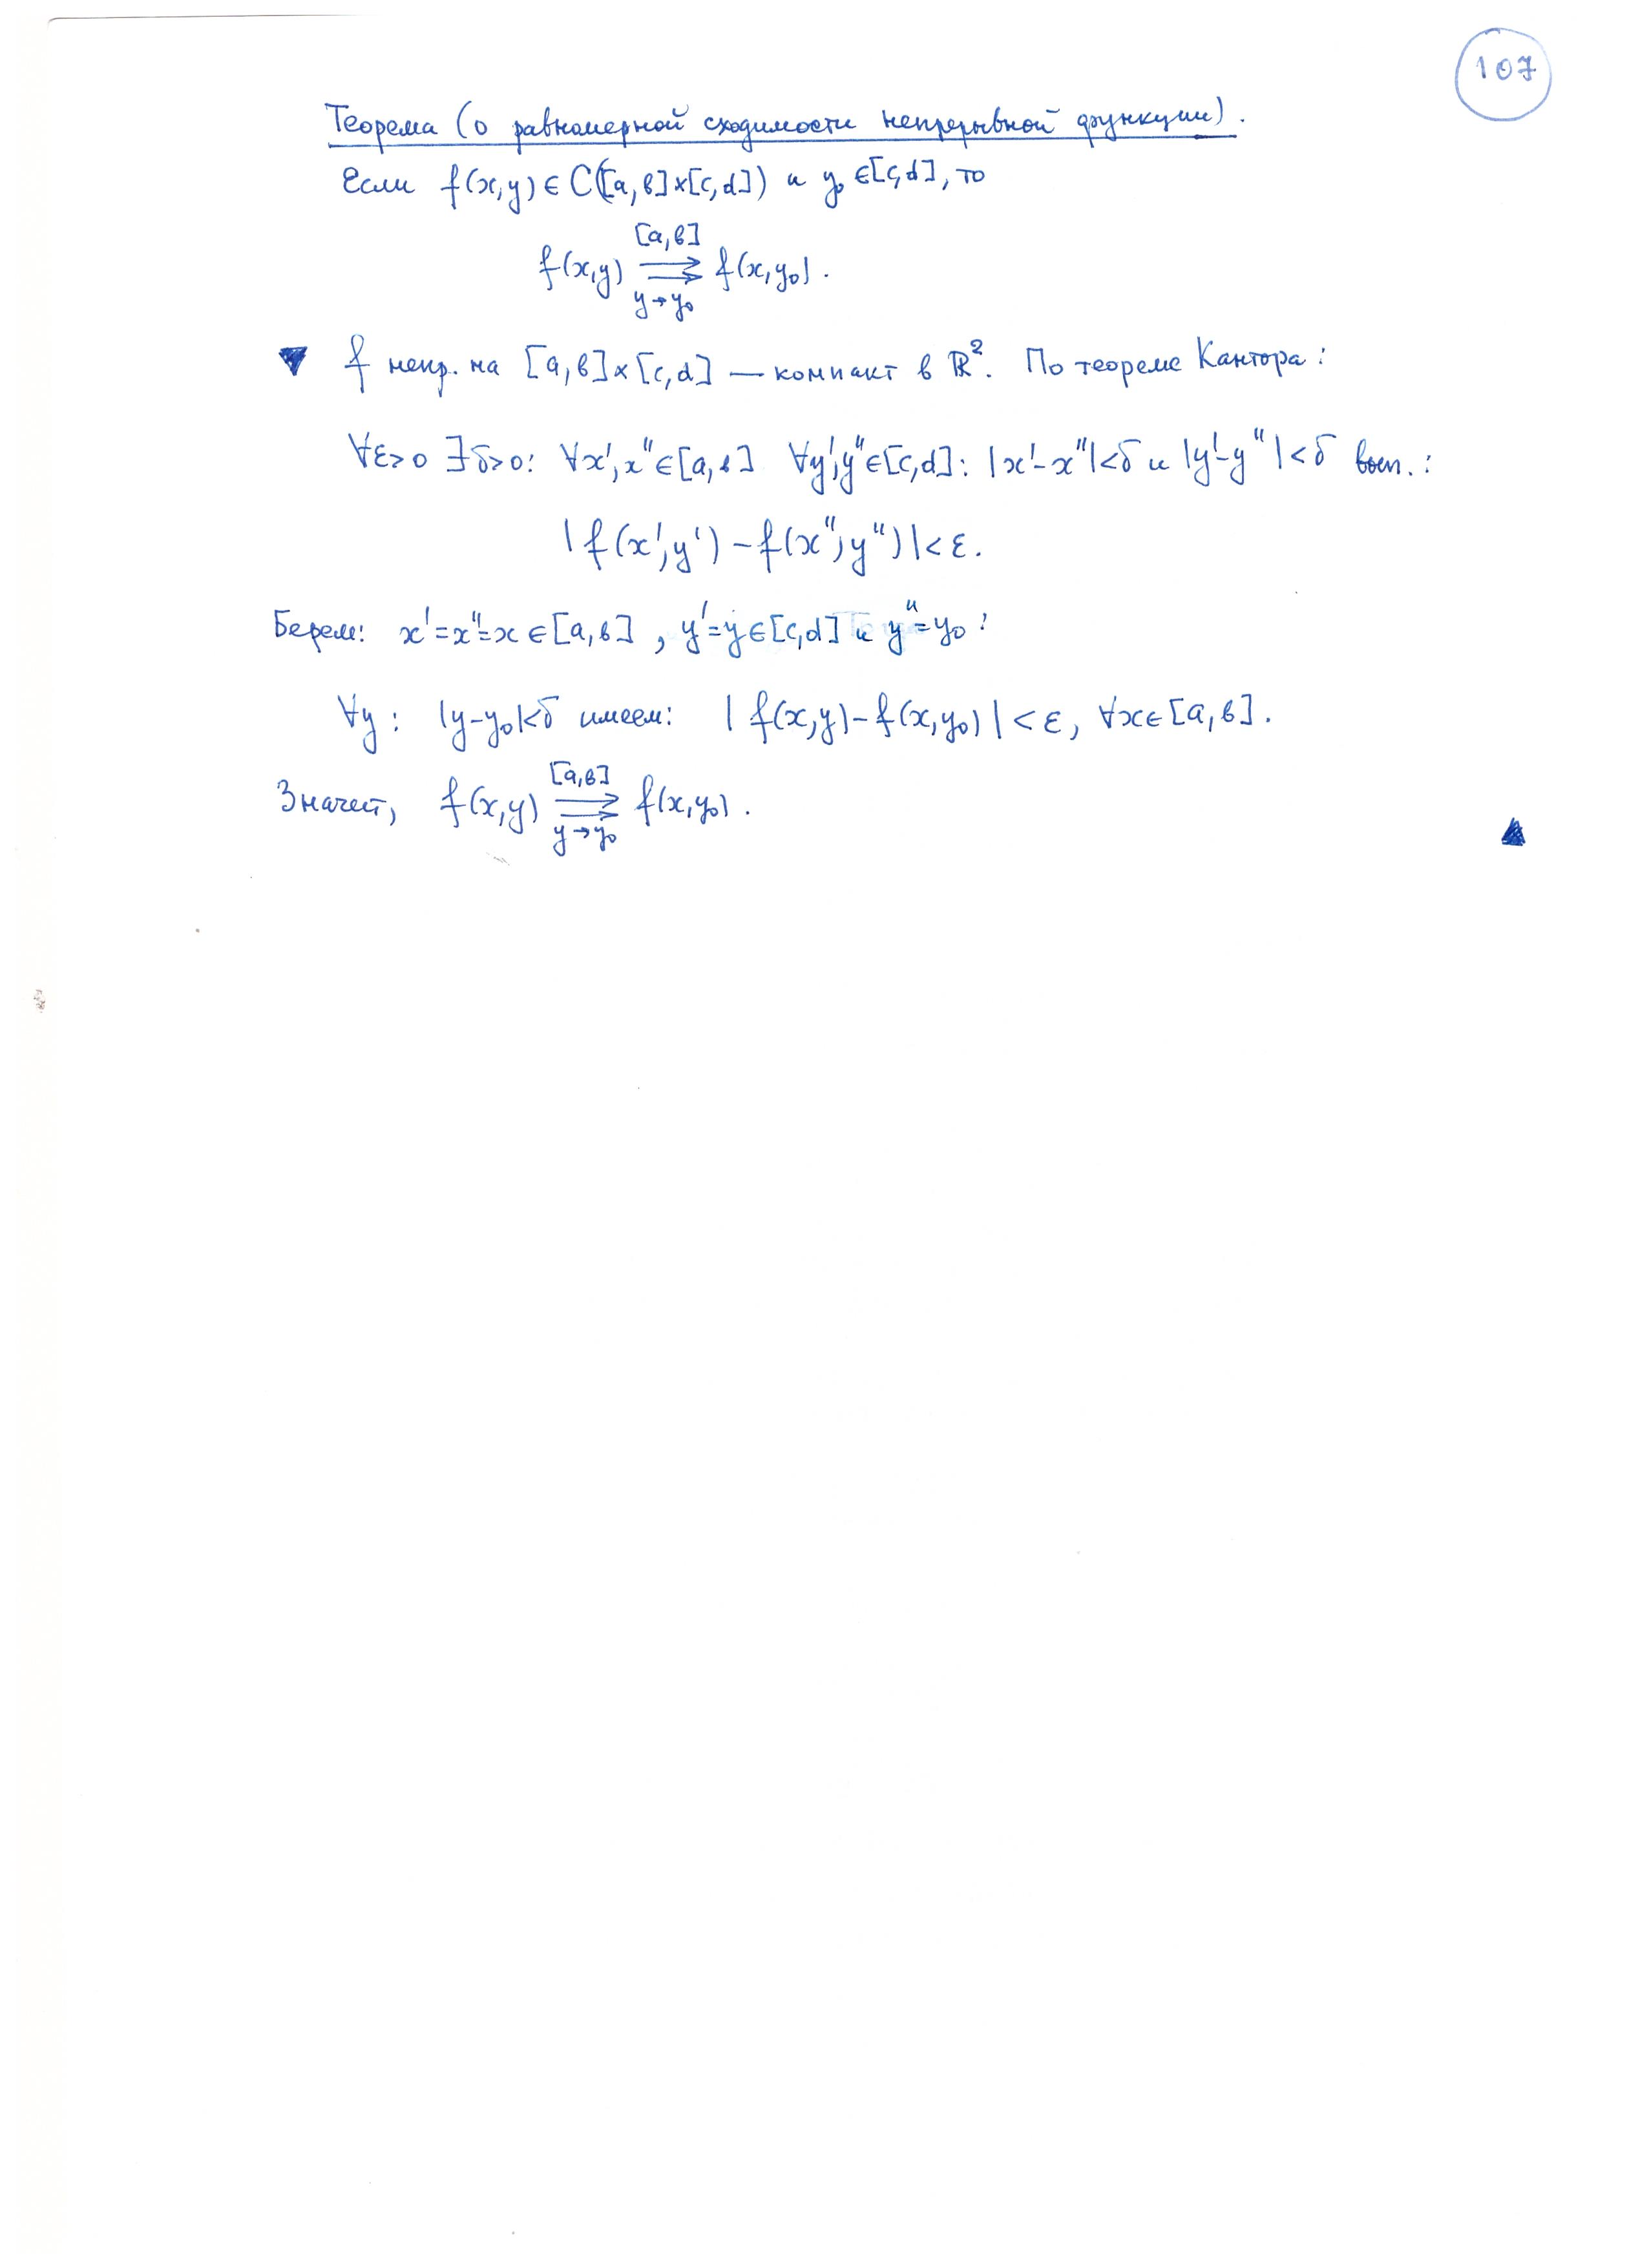 107
Теорема (о равномерной сходимости непрерывной функции).
Если f(x,y) ∈ C([a,b]×[c,d]) и y₀ ∈ [c,d], то
[a,b]
f(x,y) ⇉ f(x,y₀).
y→y₀
▼ f непр. на [a,b]×[c,d] — компакт в ℝ². По теореме Кантора:
∀ε>0 ∃δ>0: ∀x', x'' ∈ [a,b] ∀y', y'' ∈ [c,d]: |x'-x''|<δ и |y'-y''|<δ вып.:
|f(x',y') - f(x'',y'')| < ε.
Берем: x'=x''=x ∈ [a,b], y'=y ∈ [c,d] и y''=y₀:
∀y: |y-y₀|<δ имеем: |f(x,y) - f(x,y₀)| < ε, ∀x ∈ [a,b].
[a,b]
Значит, f(x,y) ⇉ f(x,y₀).
y→y₀
▲